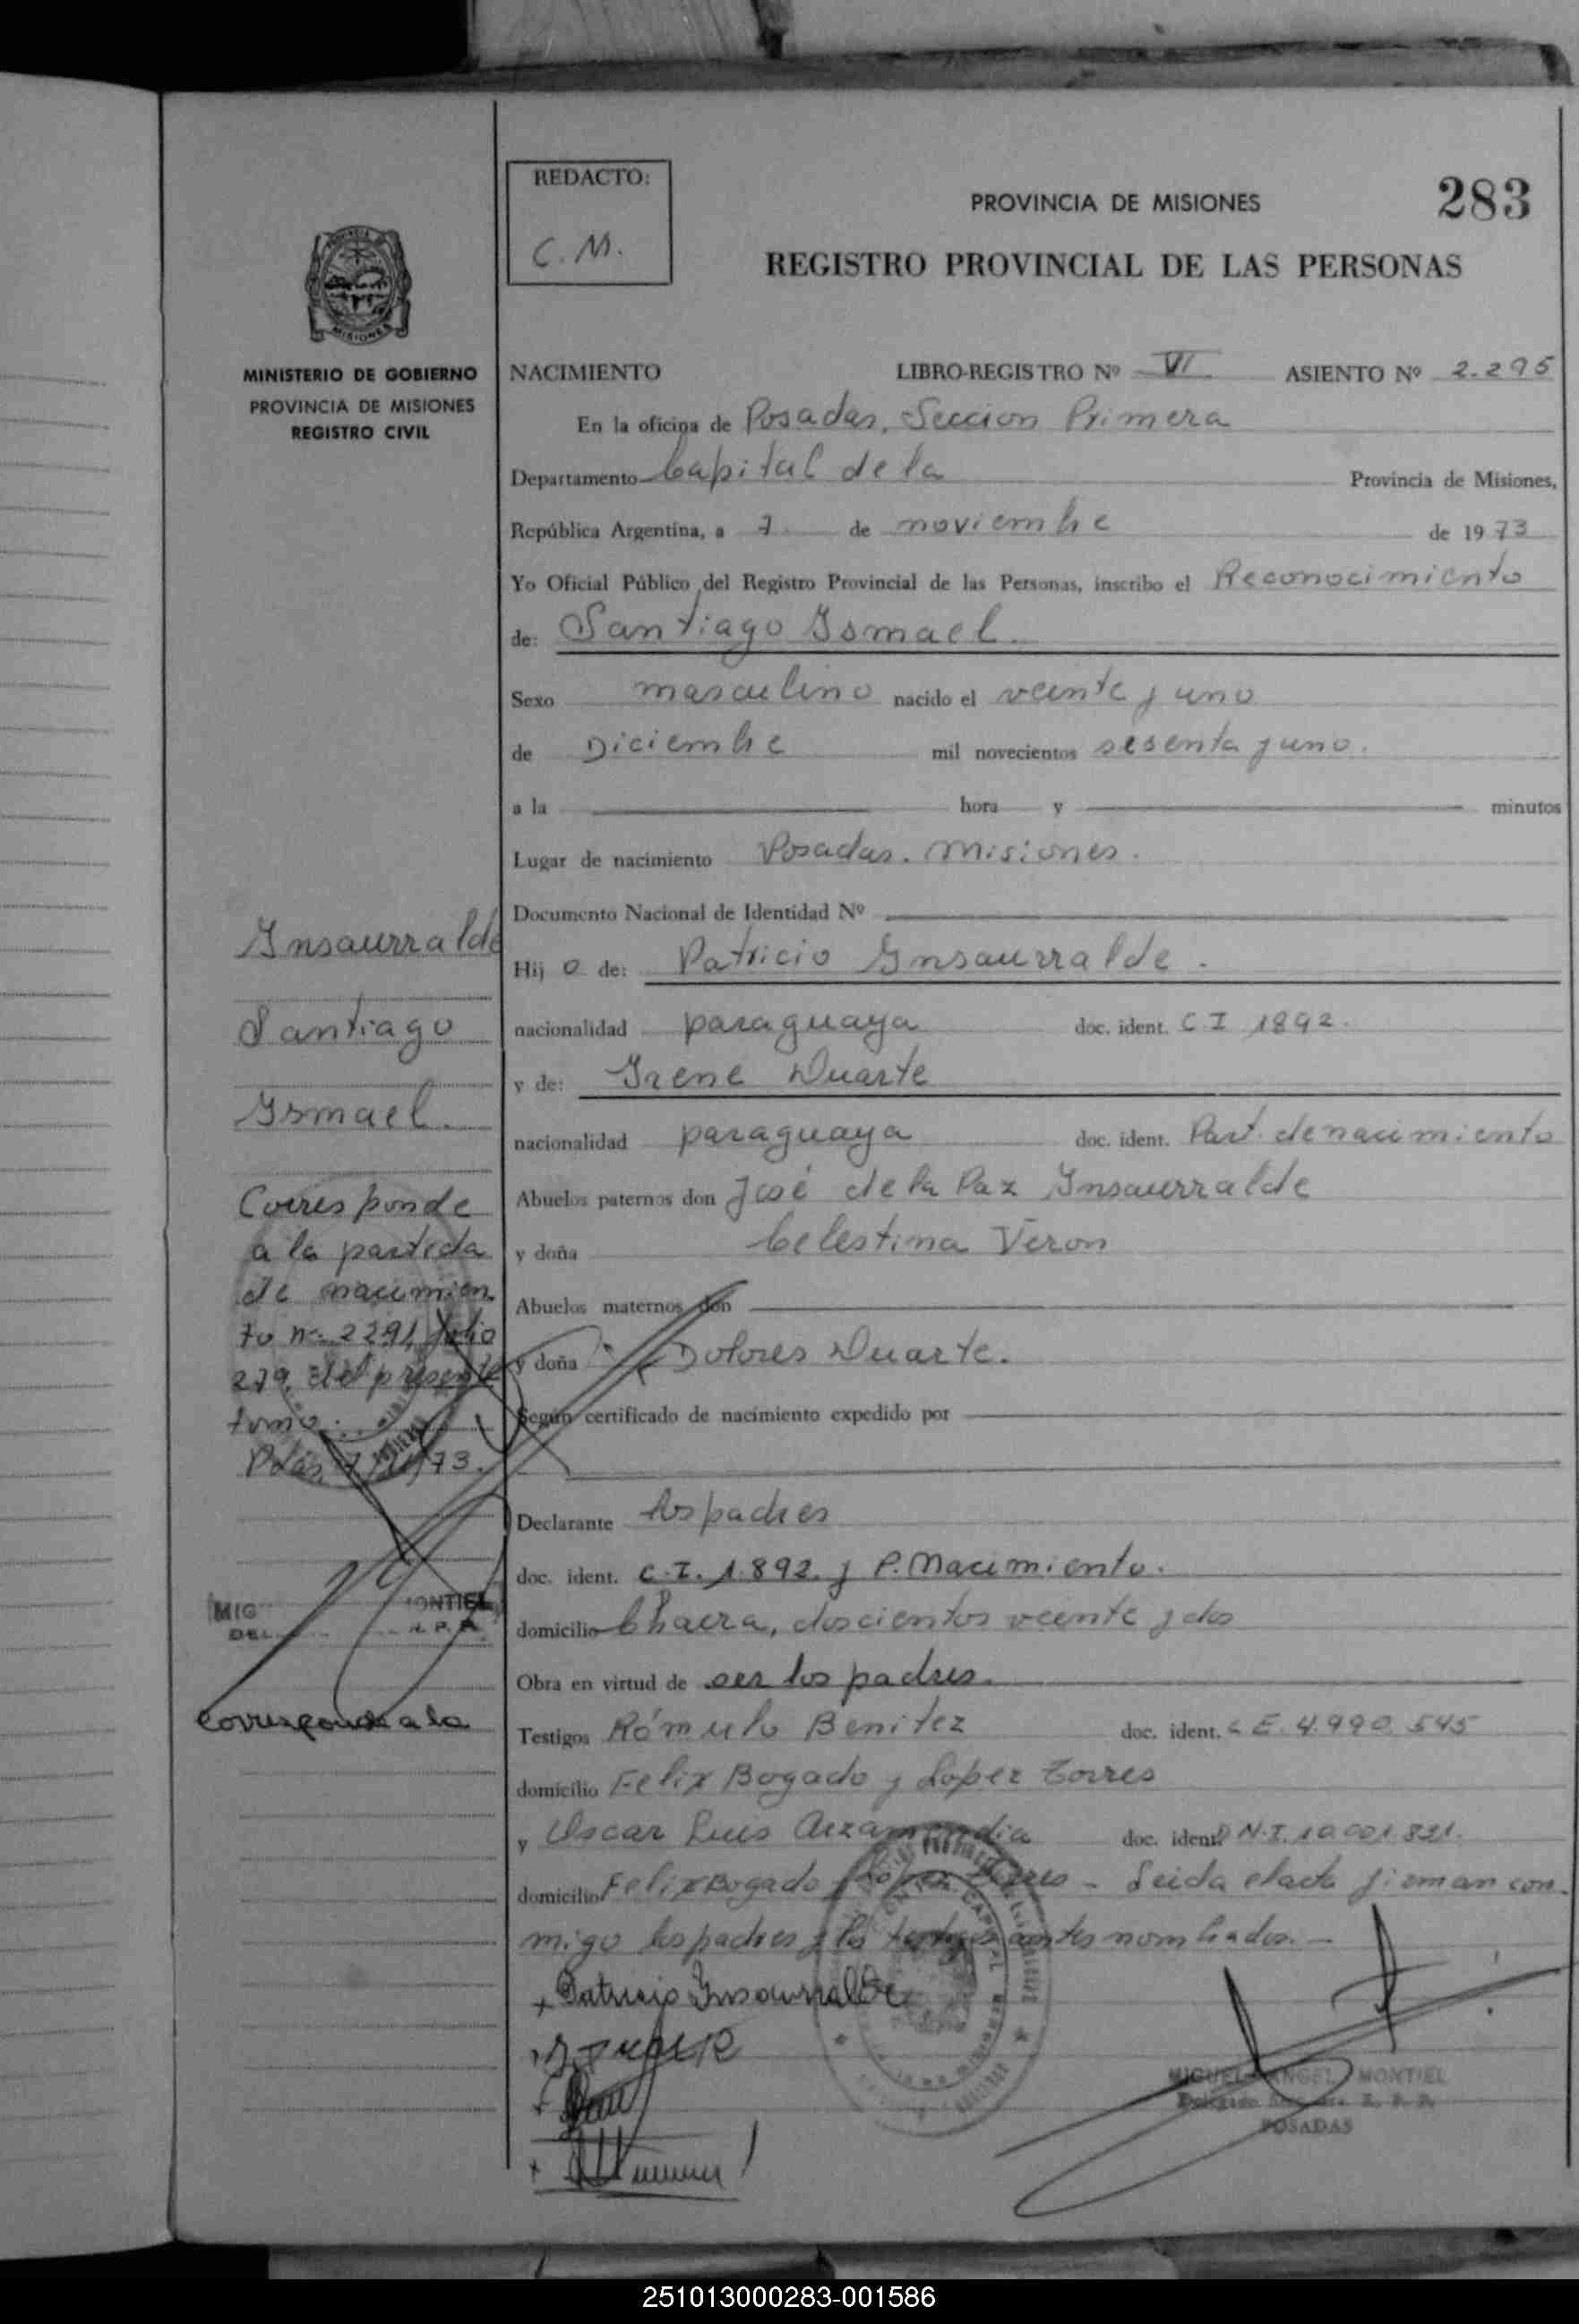 REDACTO:
C. M.
PROVINCIA DE MISIONES
283
REGISTRO PROVINCIAL DE LAS PERSONAS
MINISTERIO DE GOBIERNO
PROVINCIA DE MISIONES
REGISTRO CIVIL
NACIMIENTO LIBRO-REGISTRO Nº VI ASIENTO Nº 2.295
En la oficina de Posadas, Seccion Primera
Departamento Capital de la Provincia de Misiones,
República Argentina, a 7 de noviembre de 1973
Yo Oficial Público del Registro Provincial de las Personas, inscribo el Reconocimiento
de: Santiago Ismael.
Sexo masculino nacido el veinte y uno
de Diciembre mil novecientos sesenta y uno.
a la hora y minutos
Lugar de nacimiento Posadas. Misiones.
Documento Nacional de Identidad Nº
Hij o de: Patricio Insaurralde.
nacionalidad paraguaya doc. ident. C.I 1892.
y de: Irene Duarte
nacionalidad paraguaya doc. ident. Part. de nacimiento
Abuelos paternos don José de la Paz Insaurralde
y doña Celestina Veron
Abuelos maternos don
y doña Dolores Duarte.
Según certificado de nacimiento expedido por
Declarante los padres
doc. ident. C.I. 1.892. y P. Nacimiento.
domicilio Chacra, doscientos veinte y dos
Obra en virtud de ser los padres.
Testigos Rómulo Benitez doc. ident. L E. 4.990.545
domicilio Felix Bogado y Lopez Torres
y Oscar Luis Arzamendia doc. ident. D N.I. 10.001.821.
domicilio Felix Bogado y Lopez Torres - Leida el acta firman con-
migo los padres y los testigos antes nombrados.-
Patricio Insaurralde
MIGUEL ANGEL MONTIEL
POSADAS
Insaurralde
Santiago
Ismael.
Corresponde
a la partida
de nacimien
to nº 2291, folio
279, del presente
tomo.
Pdas, 7/11/73.
MIG MONTIEL
DEL R. P.
Corresponde a la
251013000283-001586